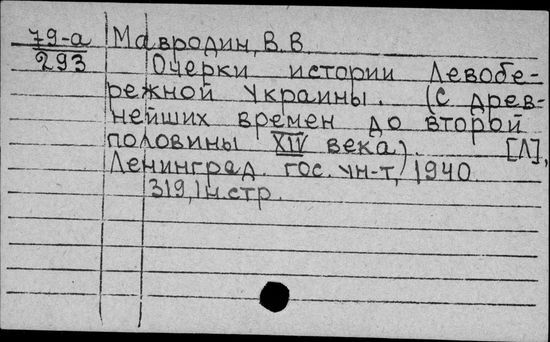 79-а Мавродин, В.В.
293 Очерки истории Левобе-
режной Украины. (С древ-
нейших времен до второй
половины XIV века). [Л],
Ленинград. гос. ун-т, 1940.
319, 1 н. стр.